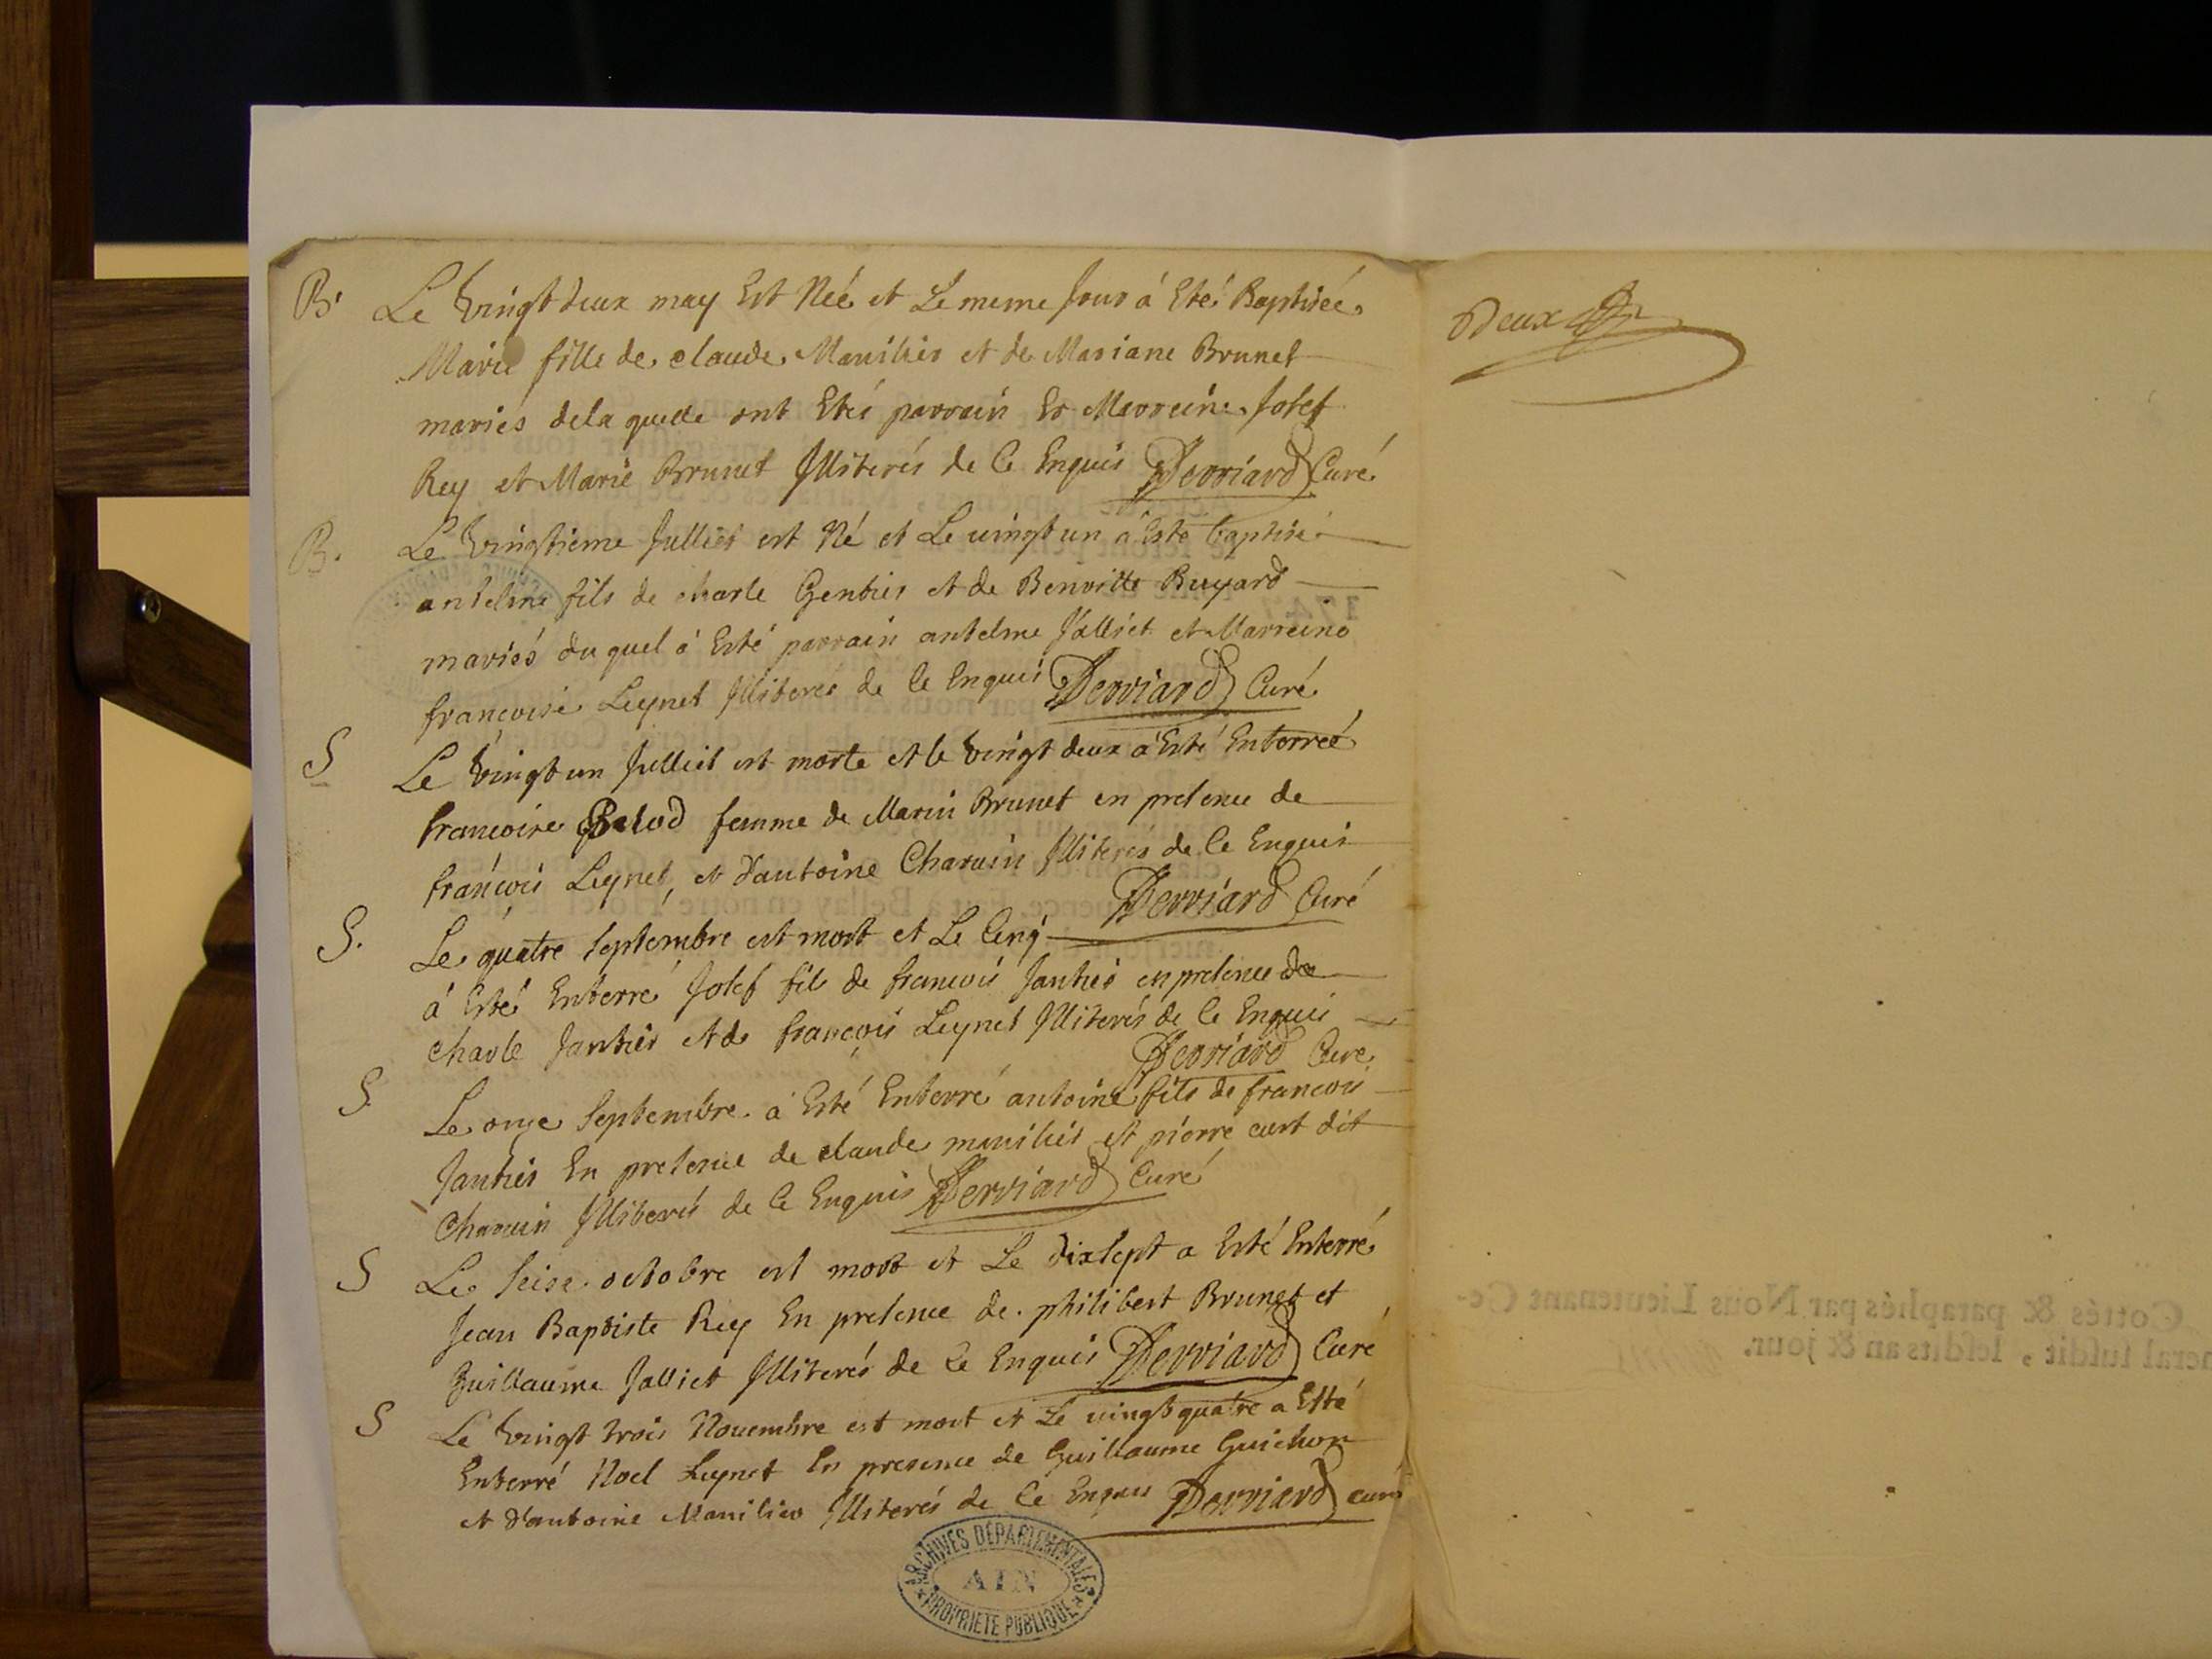 B. Le vingt deux may Est Née et Le meme Jour à Eté Baptisée
Marie fille de claude Manilier et de Mariane Brunet
mariés dela quelle ont Etés parrain Et Marreine Josef
Rey et Marie Brunet Illiterés de Ce Enquis Derriard Curé
B. Le vingtieme Julliet est Né et Le vingt un à Esté baptisé
antelme fils de charle Gentier et de Benoitte Buyard
mariés du quel à Esté parrain antelme Jalliet et Marreine
francoise Leynet Illiterés de Ce Enquis Derriard Curé
S Le vingt un Julliet est morte et le vingt deux à Esté Enterreé
francoise Belod femme de Marin Brunet en presence de
françois Leynet, et d'antoine Charuin Illiterés de Ce Enquis
Derriard Curé
S. Le quatre septembre est mort et Le Cinq
à Esté Enterré Josef fils de francois Jantier en presence de
charle Jantier et de françois Leynet Illiterés de Ce Enquis
Derriard Curé
S Le onze septembre à Esté Enterré antoine fils de francois
Jantier En presence de claude manilier et pierre curt dit
Charuin Illiterés de Ce Enquis Derriard Curé
S Le seise octobre est mort et Le dixsept a Esté Enterré
Jean Baptiste Rey En presence de philibert Brunet et
Guillaume Jalliet Illiterés de Ce Enquis Derriard Curé
S Le vingt trois Novembre est mort et Le vingt quatre a Esté
Enterré Noel Leynet En presence de Guillaume Guichon
et d'antoine Manilier Illiterés de Ce Enquis Derriard curé
ARCHIVES DÉPARTEMENTALES
AIN
PROPRIETE PUBLIQUE
Deux
Cottés & paraphés par Nous Lieutenant Ge-
neral susdit, lesdits an & jour.